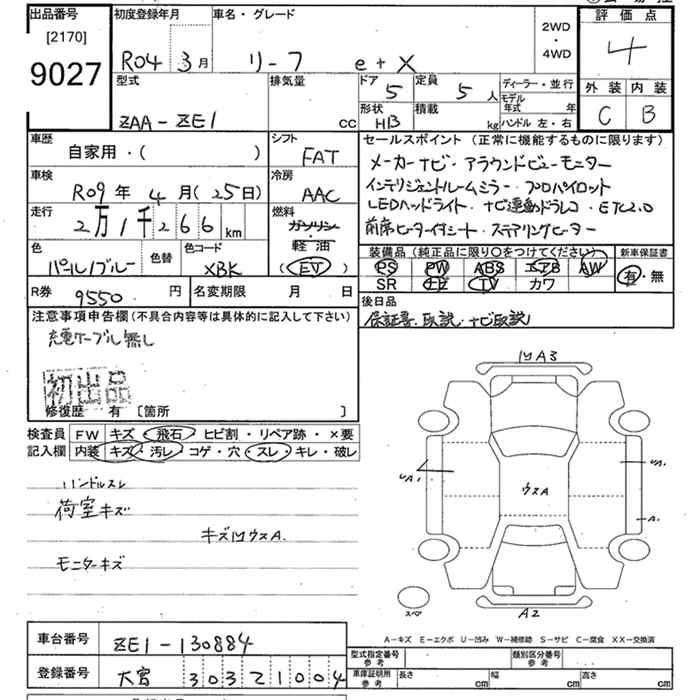 出品番号
[2170]
9027
初度登録年月
R04 3月
車名・グレード
リーフ e+X
2WD
・
4WD
評価点
4
外装 内装
C B
型式
ZAA-ZE1
排気量
CC
ドア 5
定員 5人
形状 HB
積載 kg
ディーラー・並行
モデル年式 年
ハンドル 左・右
車歴
自家用・( )
シフト
FAT
車検
R09年4月(25日)
冷房
AAC
走行
2万1千266km
燃料
ガソリン・
軽油
(EV)
色
パール/ブルー
色替
色コード
XBK
セールスポイント(正常に機能するものに限ります)
メーカーナビ・アラウンドビューモニター
インテリジェントルームミラー・プロパイロット
LEDヘッドライト・ナビ連動ドラレコ・ETC2.0
前席ヒーター付シート・ステアリングヒーター
装備品(純正品に限り○をつけてください)
新車保証書
PS PW ABS エアB AW
SR ナビ TV カワ
有・無
R券 9550円
名変期限 月 日
後日品
保証書、取説・ナビ取説
注意事項申告欄(不具合内容等は具体的に記入して下さい)
充電ケーブル無し
初出品
修復歴 有 [箇所 ]
検査員記入欄
FW キズ・飛石・ヒビ割・リペア跡・×要
内装 キズ・汚レ・コゲ・穴・スレ・キレ・破レ
ハンドルスレ
荷室キズ
キズ凹ウスA.
モニターキズ
凹A3
ウスA
A.
A2
スペア
A-キズ E-エクボ U-凹み W-補修跡 S-サビ C-腐食 XX-交換済
車台番号 ZE1-130884
登録番号 大宮 303 ろ 1004
型式指定番号
参考
類別区分番号
参考
車庫証明用
参考
長さ cm
幅 cm
高さ cm